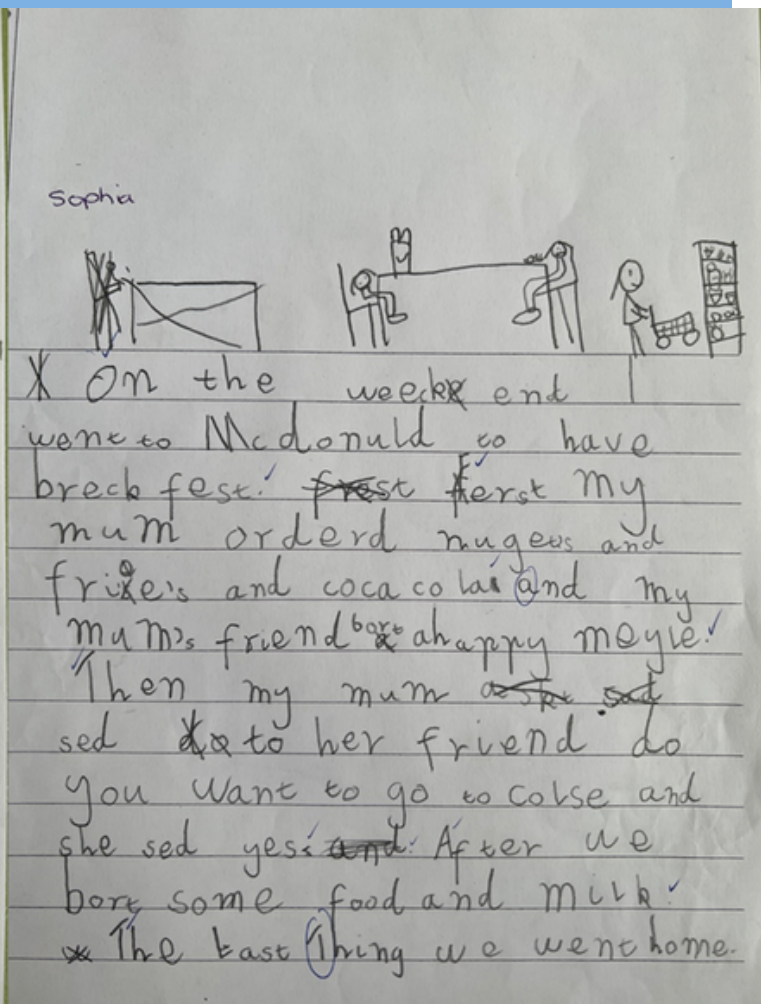 Sophia
On the week end I
went to Mcdonuld to have
breck fest. ferst my
mum orderd nugets and
frize's and coca cola and my
mum's friend bort ahappy meyle.
Then my mum
sed to her friend do
you want to go to Colse and
she sed yes. After we
bort some food and milk.
The last Thing we went home.